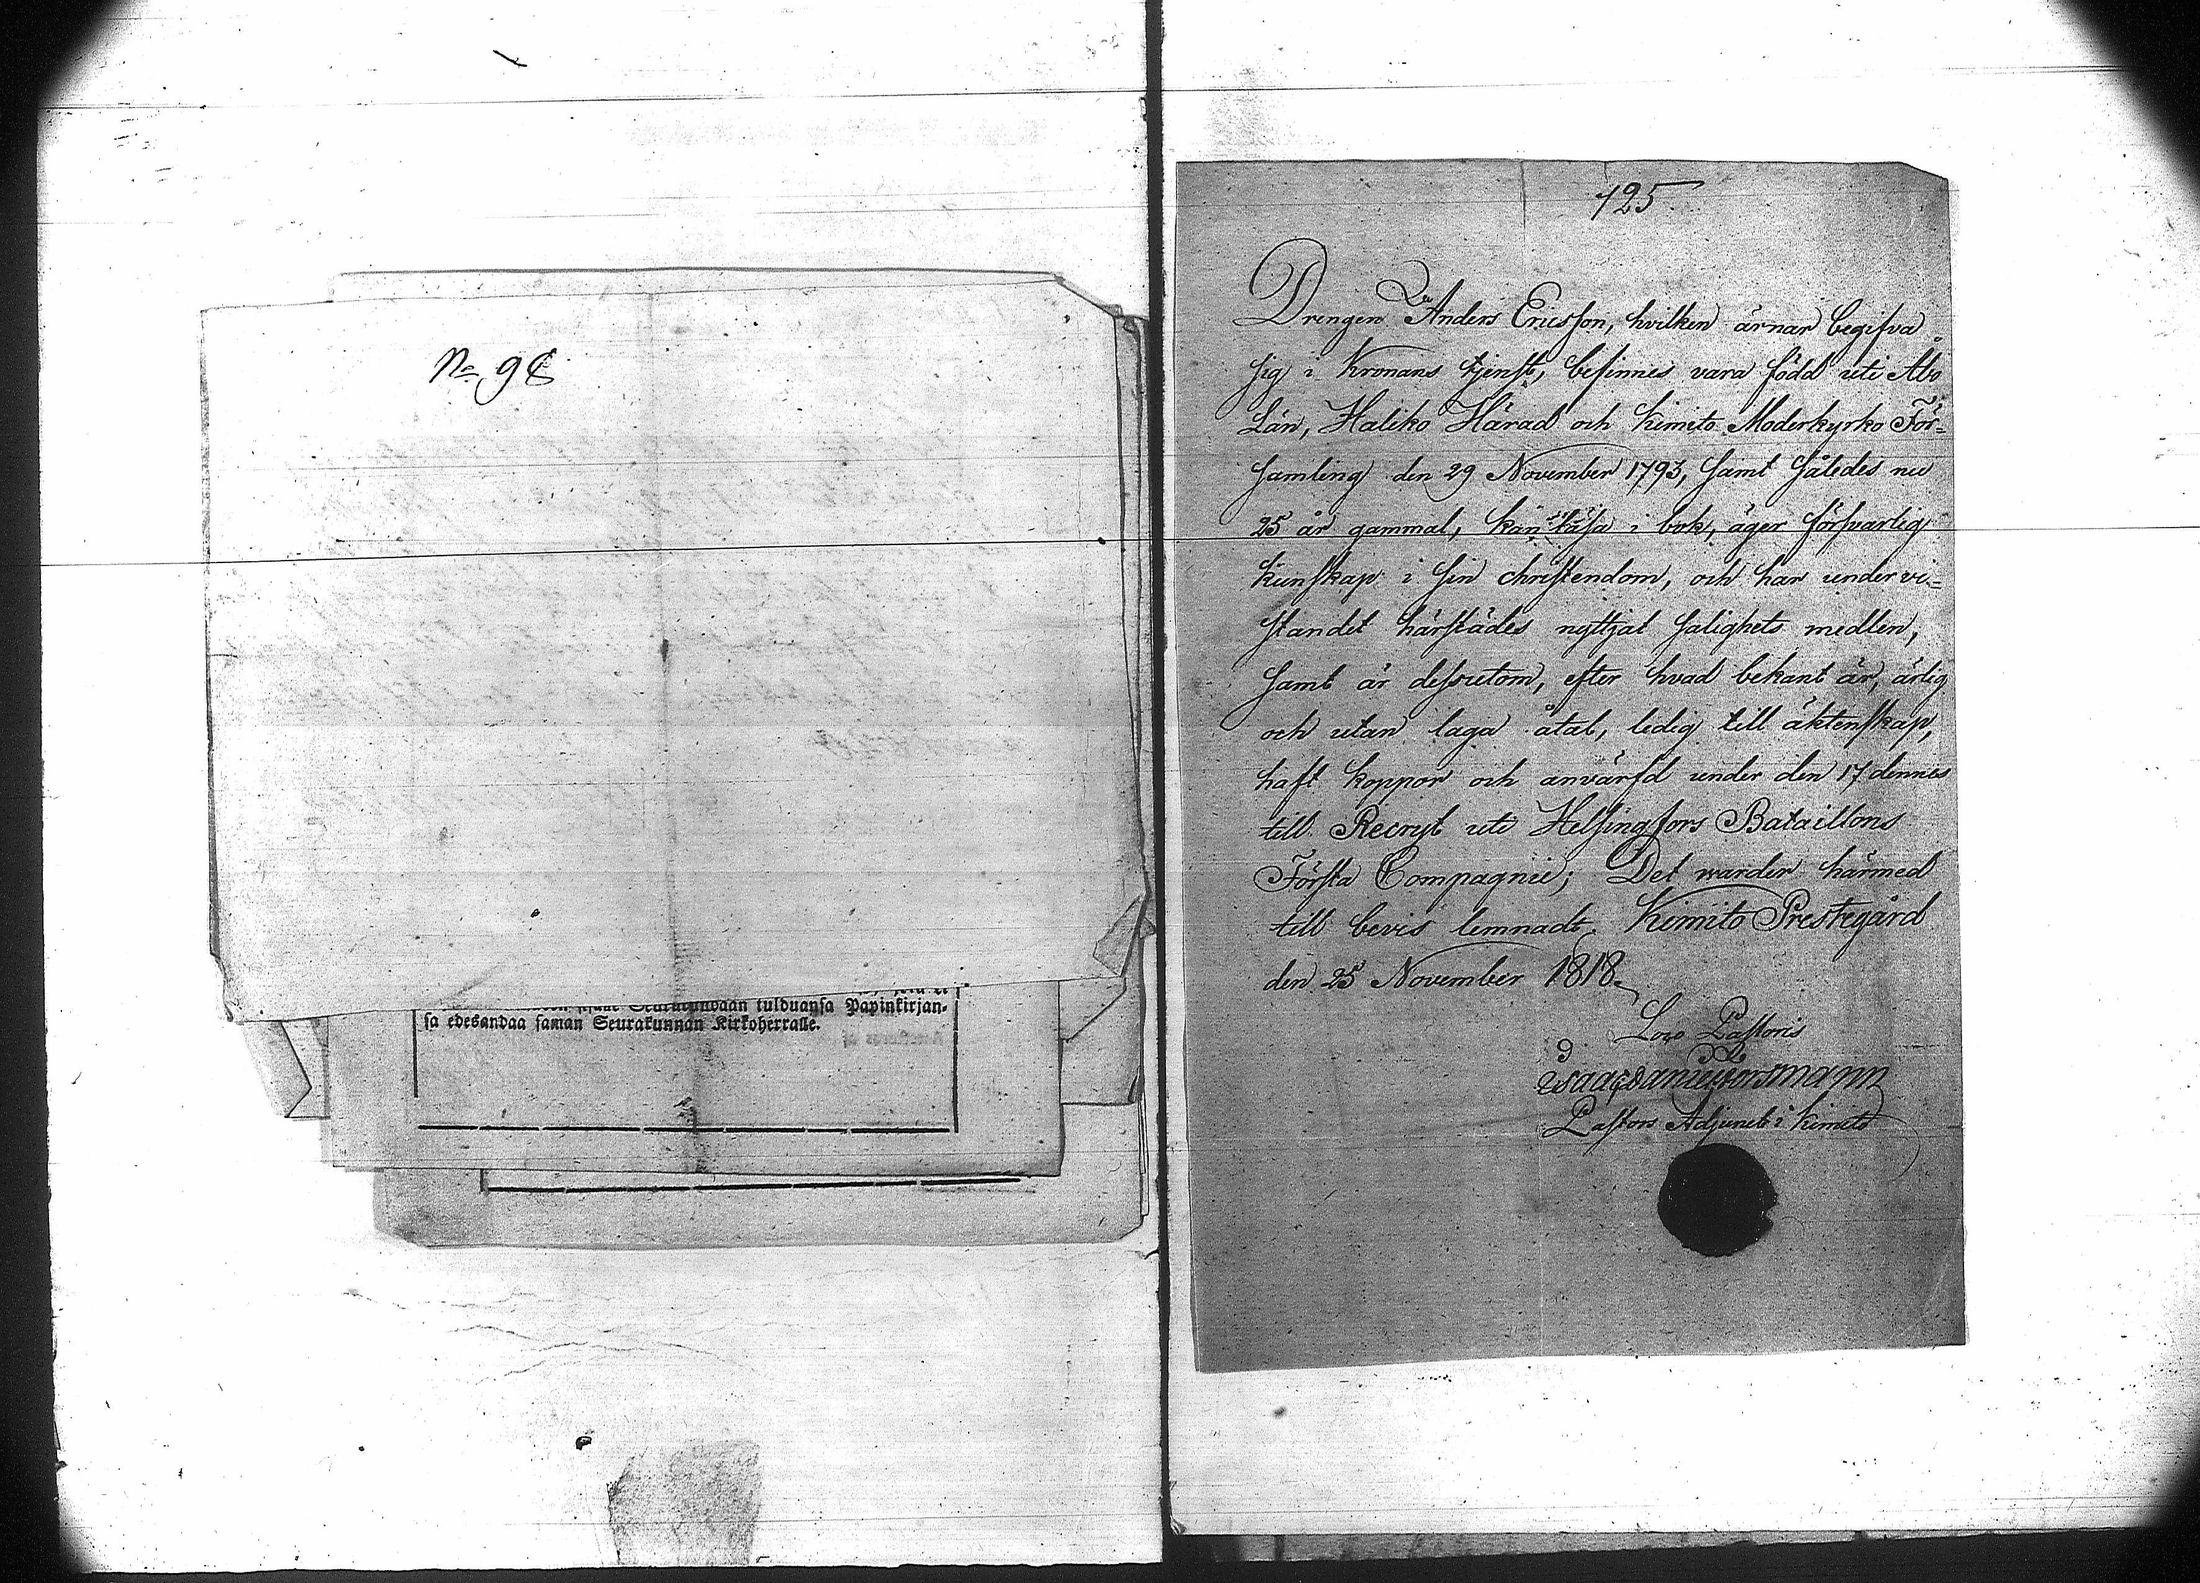 No 98
Seurakundaan tulduansa Papinkirjan-
sa edesandaa saman Seurakunnan Kirkoherralle.
125
Drengen Anders Ericsson, hvilken ärnar begifva
sig i Kronans tjenst, befinnes vara född uti Åbo
Län, Haliko Härad och Kimito Moderkyrko För-
samling den 29 November 1793, samt således nu
25 år gammal, kan läsa i bok, äger försvarlig
kunskap i sin christendom, och har under vi-
standet härstädes nyttjat salighets medlen,
samt är dessutom, efter hvad bekant är, ärlig
och utan laga åtal, ledig till äktenskap,
haft koppor och anvärfd under den 17 dennes
till Recryt uti Helsingfors Bataillons
Första Compagnie; Det warder härmed
till bevis lemnadt. Kimito Prestegård
den 25 November 1818.
Loco Pastoris
Isaac Daniel Forsmann
Pastors Adjunct i Kimito